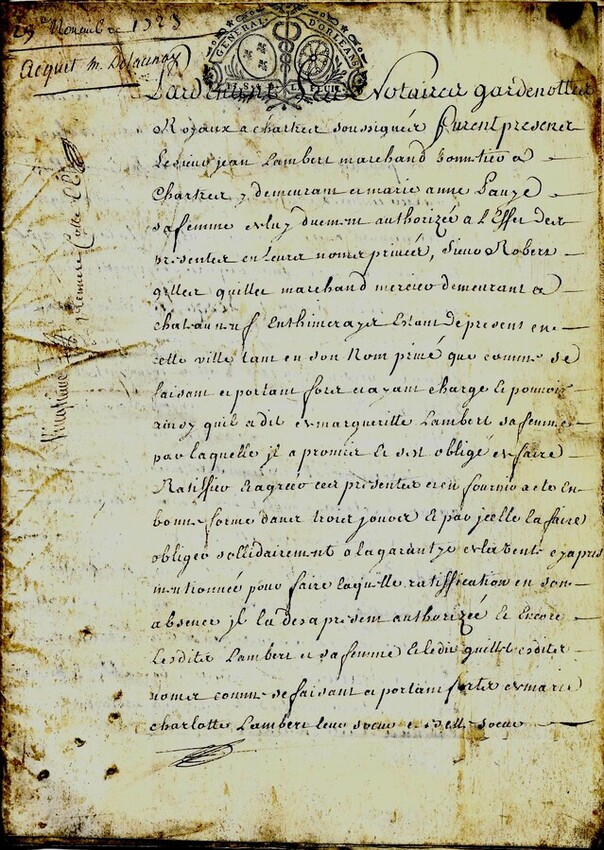 29 Novembre 1723
Acquet m. Delaunay
GENERAL D'ORLEANS
Pardevant Les Notaires gardenottes
Royaux a chartres soussignés furent presens
Le sieur jean Lambert marchand bonnetier a
Chartres y demeurant et marie anne
sa femme de luy duement authorizée a L'Effet des
presentes en leurs noms privés, sieur Robert
gilles quillet marchand mercier demeurant a
chateauneuf En thimerayes Estant de present en
cette ville tant en son Nom privé que comme se
faisant et portant fort et ayant charge et pouvoir
ainsy quil a dit de margueritte Lambert sa femme
par laquelle jl a promis et sest obligé de faire
Ratiffier et agréer ces presentes et en fournir acte En
bonne forme dans trois jours et par jcelle la faire
obliger sollidairement a la garantye de la vente cy apres
mentionnée pour faire laquelle ratiffication en son
absence jl la des a present authorizée et Encore
Lesdits Lambert et sa femme et ledit quillet esdits
noms comme se faisant et portant forts de marie
charlotte Lambert leur soeur et belle soeur
premiere